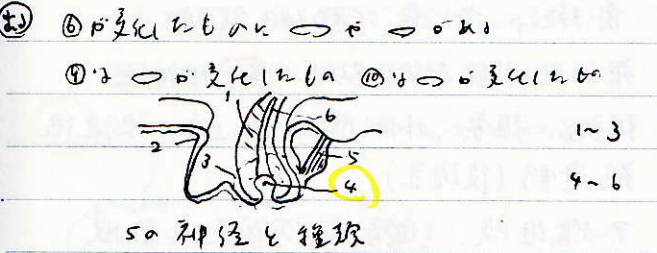 ⑧が変化したものに ○ や ○ がある
⑨は ○ が変化したもの ⑩は ○ が変化したもの
1 6
2 3 5 4
1~3
4~6
5の神経と種類